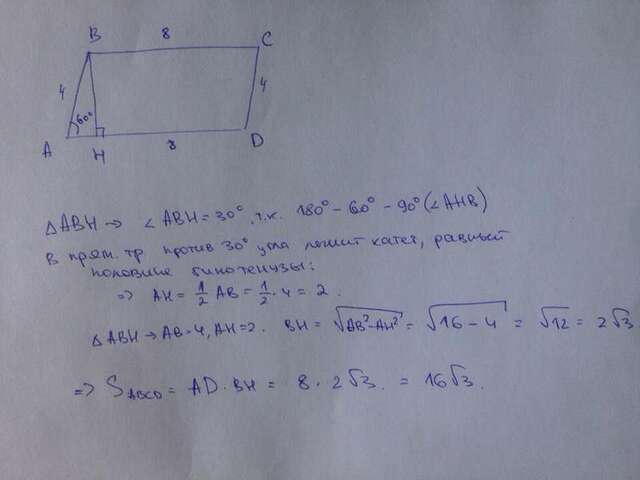 B 8 C
4 4
60°
A H 8 D
△ABH → ∠ABH = 30°, т.к. 180° - 60° - 90° (∠AHB)
В прям. тр. против 30° угла лежит катет, равный
половине гипотенузы:
=> AH = 1/2 AB = 1/2 · 4 = 2.
△ABH → AB=4, AH=2. BH = √(AB²-AH²) = √(16-4) = √12 = 2√3
=> S_ABCD = AD · BH = 8 · 2√3. = 16√3.